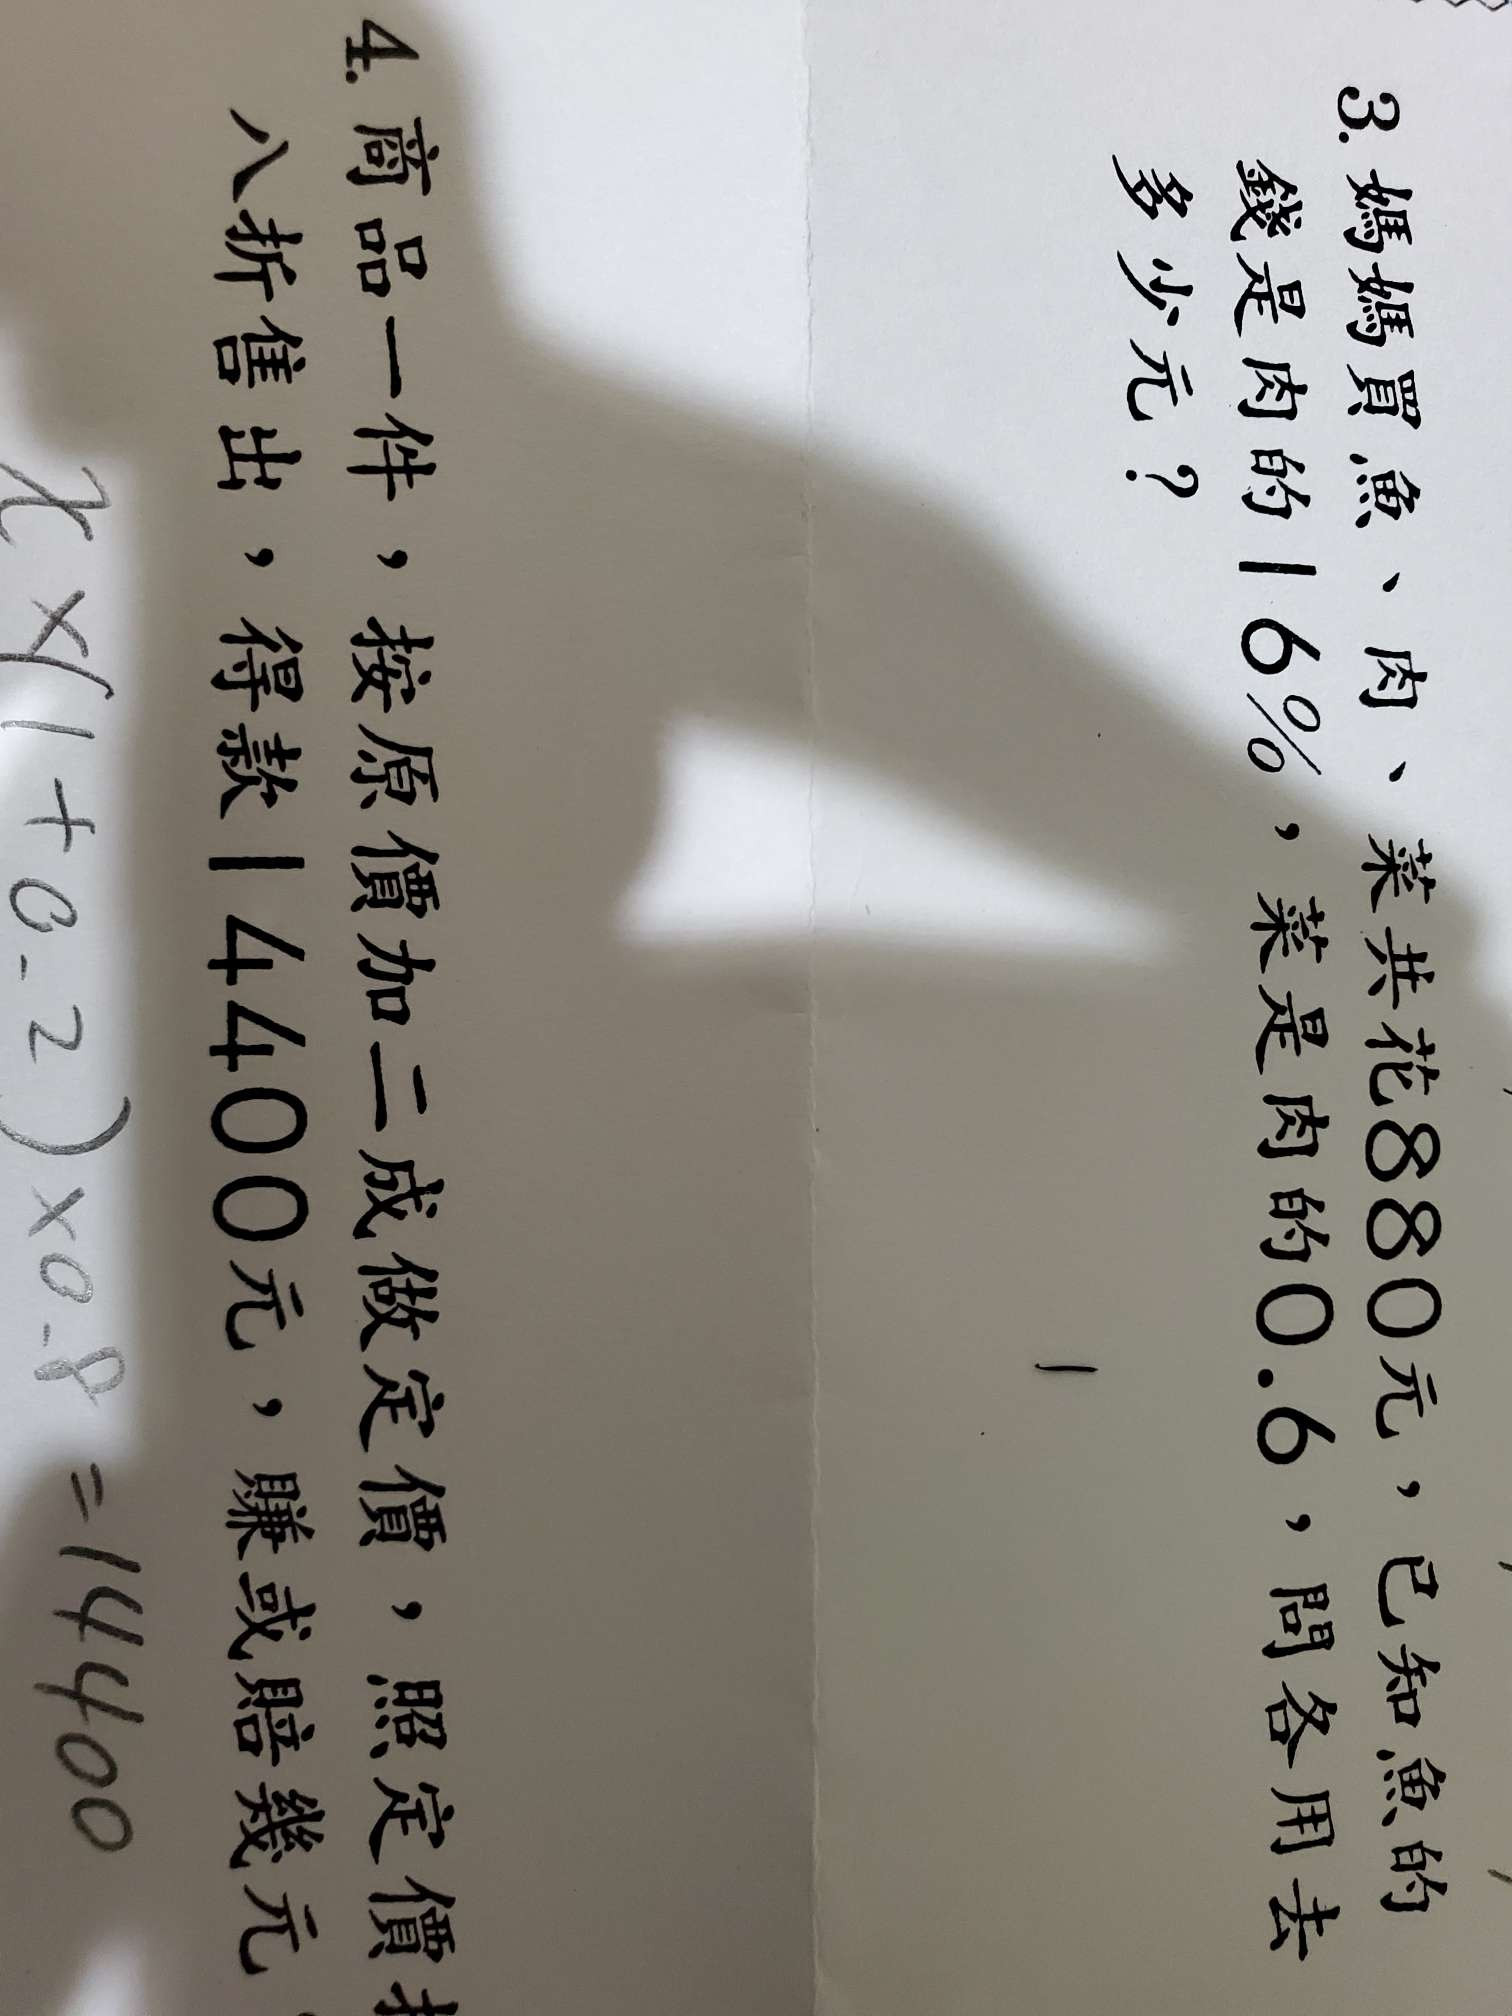 3. 媽媽買魚、肉、菜共花880元，已知魚的
錢是肉的16%，菜是肉的0.6，問各用去
多少元？
4. 商品一件，按原價加二成做定價，照定價打
八折售出，得款14400元，賺或賠幾元
x×(1+0.2)×0.8=14400